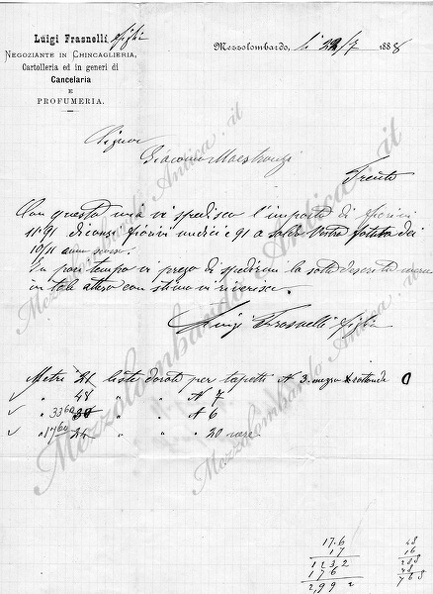 Luigi Frasnelli, e figli
Negoziante in Chincaglieria,
Cartelleria ed in generi di
Cancelaria
E
PROFUMERIA.
Mezzolombardo, li 22/7 1888
Signor
Giacomo
Trento
Con questa mia vi spedisco l'importo di fiorini
11.91 diconsi fiorini undici e 91 a saldo Vostra fattura dei
10/11 anno scorso.
In pari tempo vi prego di spedirmi la sotto descritta merce
in tale attesa con stima vi riverisce.
Luigi Frasnelli e figli
Metri 24 liste dorate per tapetti N 3. mezzo rotonda
" 48 " " N 7
" 33 60 " " N 6
" 17 60 24 " " 20
17.6
17
1232
176
2992
48
16
288
48
768
Mezzolombardo Antica.it
Mezzolombardo Antica.it